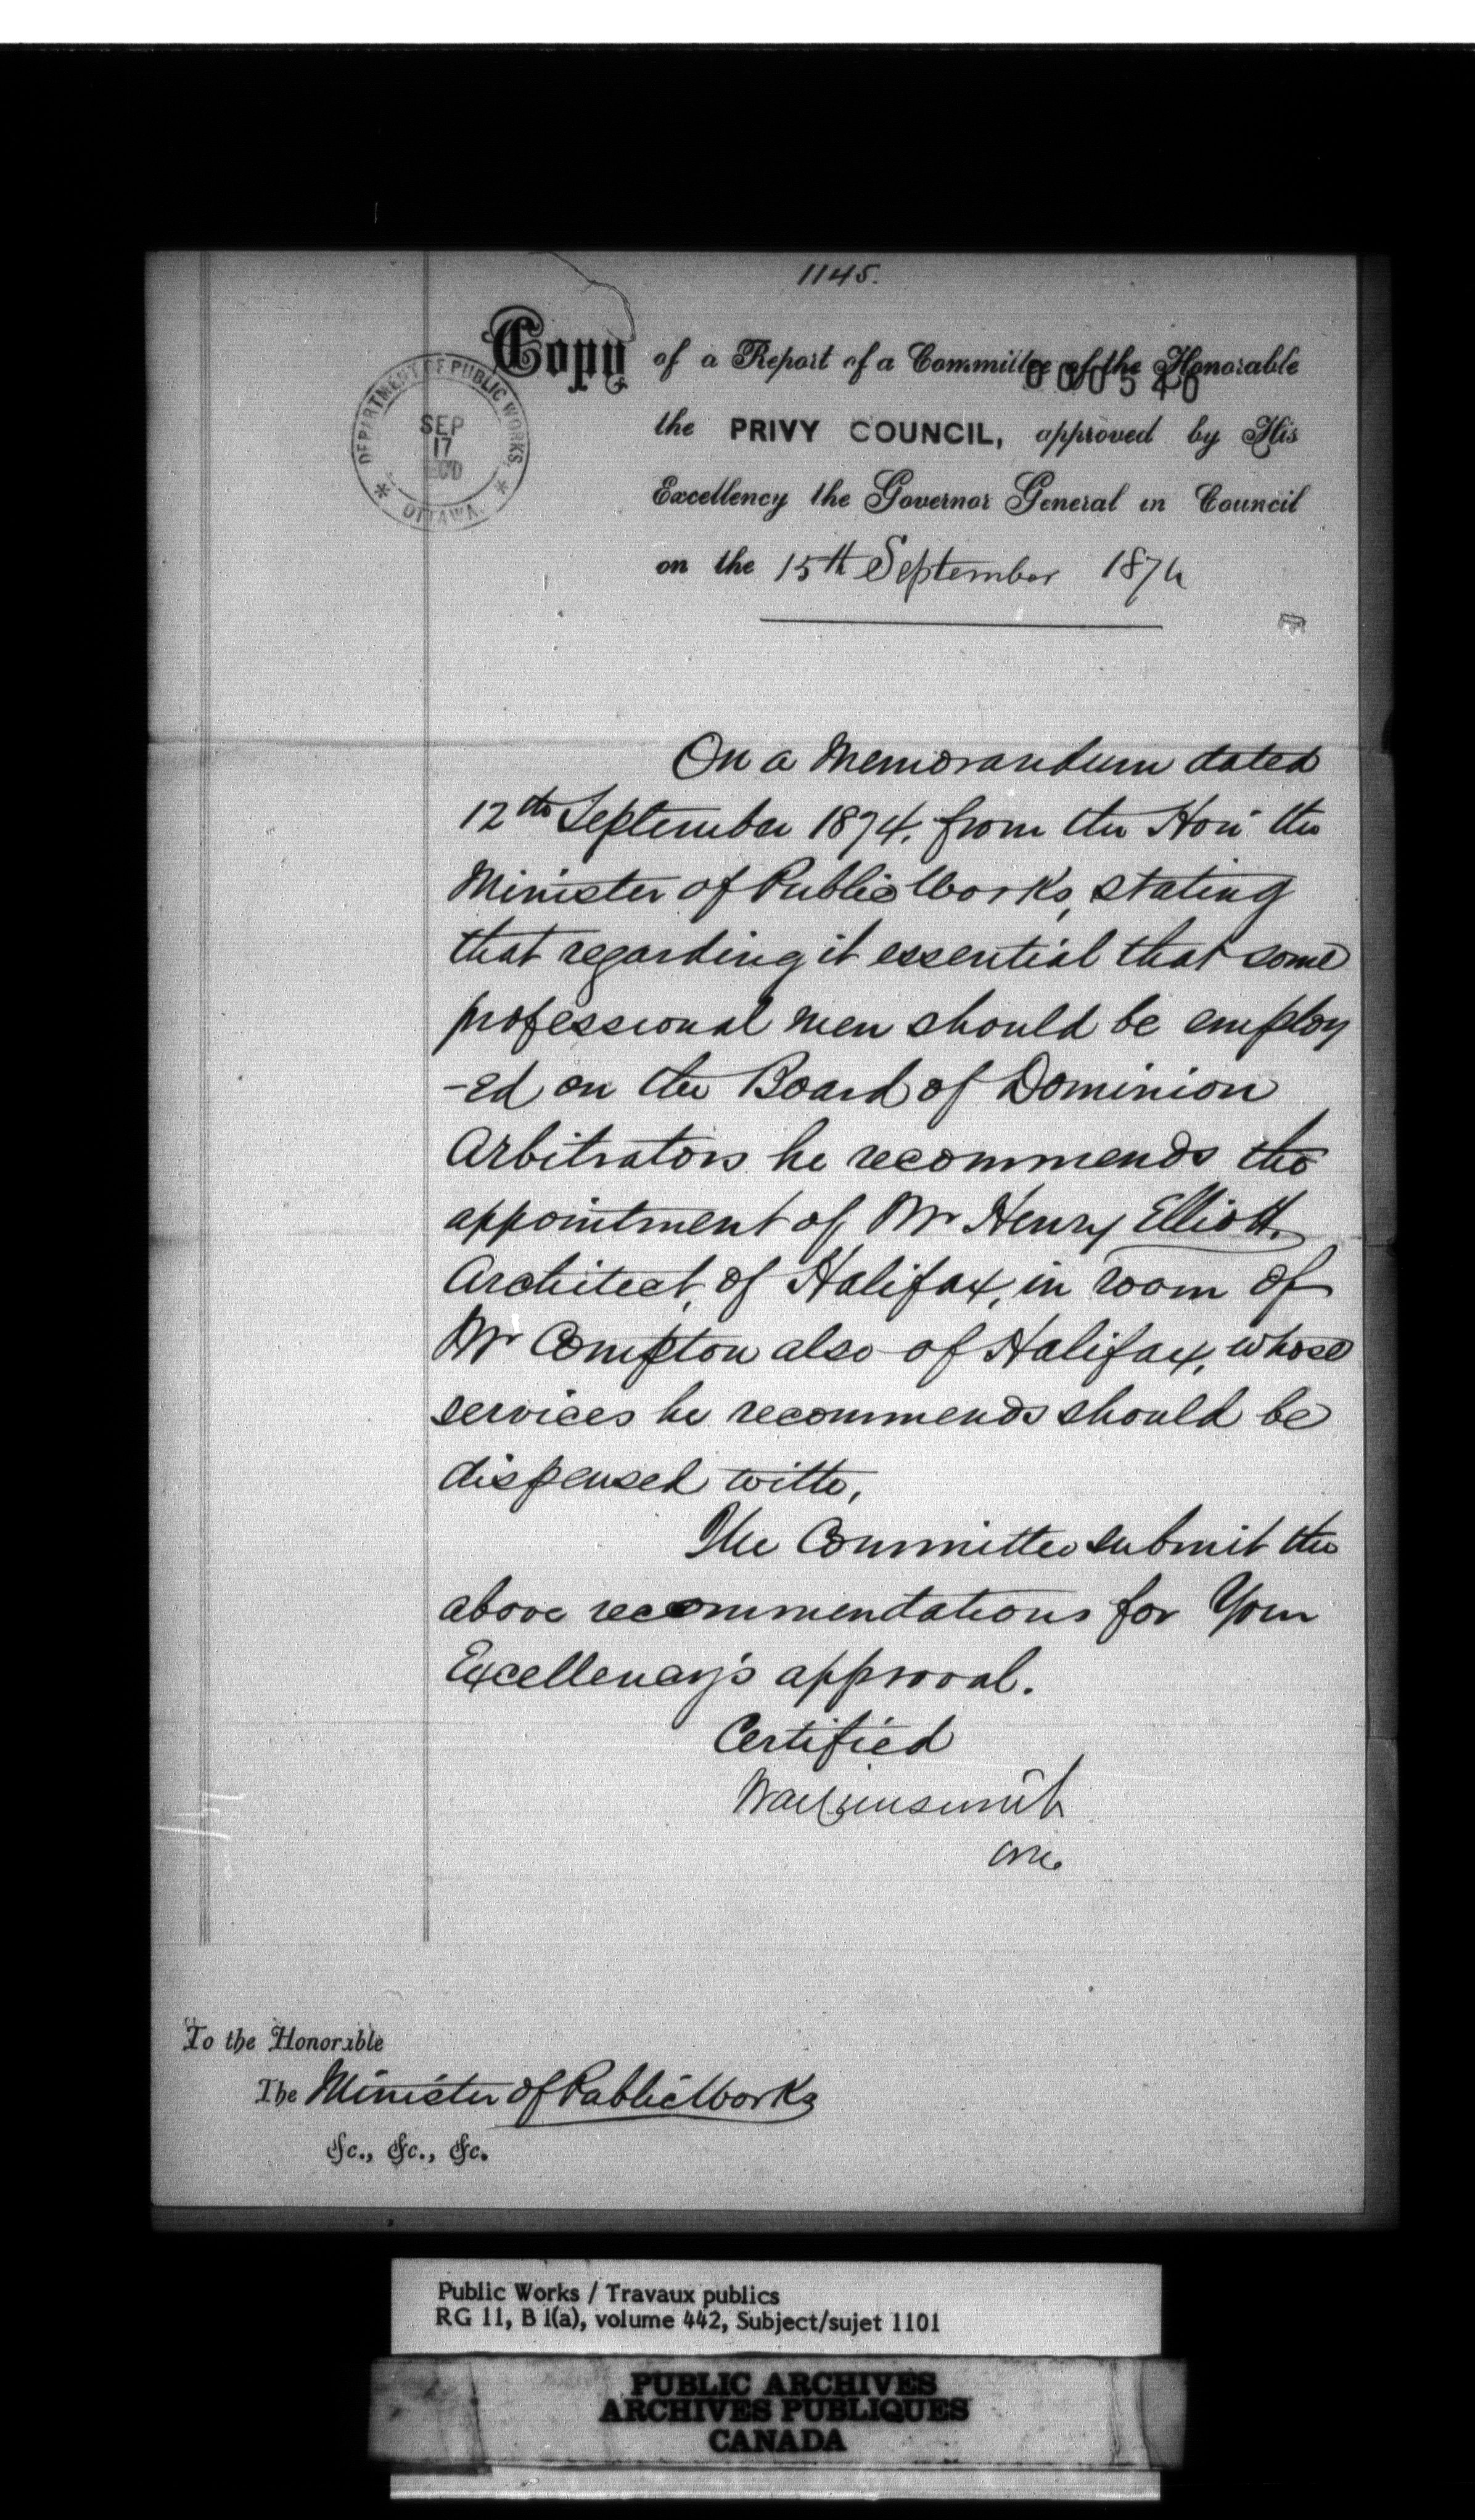 1145.
Copy of a Report of a Committee of the Honorable
000540
the PRIVY COUNCIL, approved by His
Excellency the Governor General in Council
on the 15th September 1874
DEPARTMENT OF PUBLIC WORKS,
SEP
17
REC'D
* OTTAWA. *
On a Memorandum dated
12th September 1874, from the Hon the
Minister of Public Works, stating
that regarding it essential that some
professional men should be employ
-ed on the Board of Dominion
Arbitrators he recommends the
appointment of Mr Henry Elliott
Architect, of Halifax, in room of
Mr Compton also of Halifax, whose
services he recommends should be
dispensed with,
The Committee submit the
above recommendations for Your
Excellency's approval.
Certified
To the Honorable
The Minister of Public Works
&c., &c., &c.
Public Works / Travaux publics
RG 11, B 1(a), volume 442, Subject/sujet 1101
PUBLIC ARCHIVES
ARCHIVES PUBLIQUES
CANADA